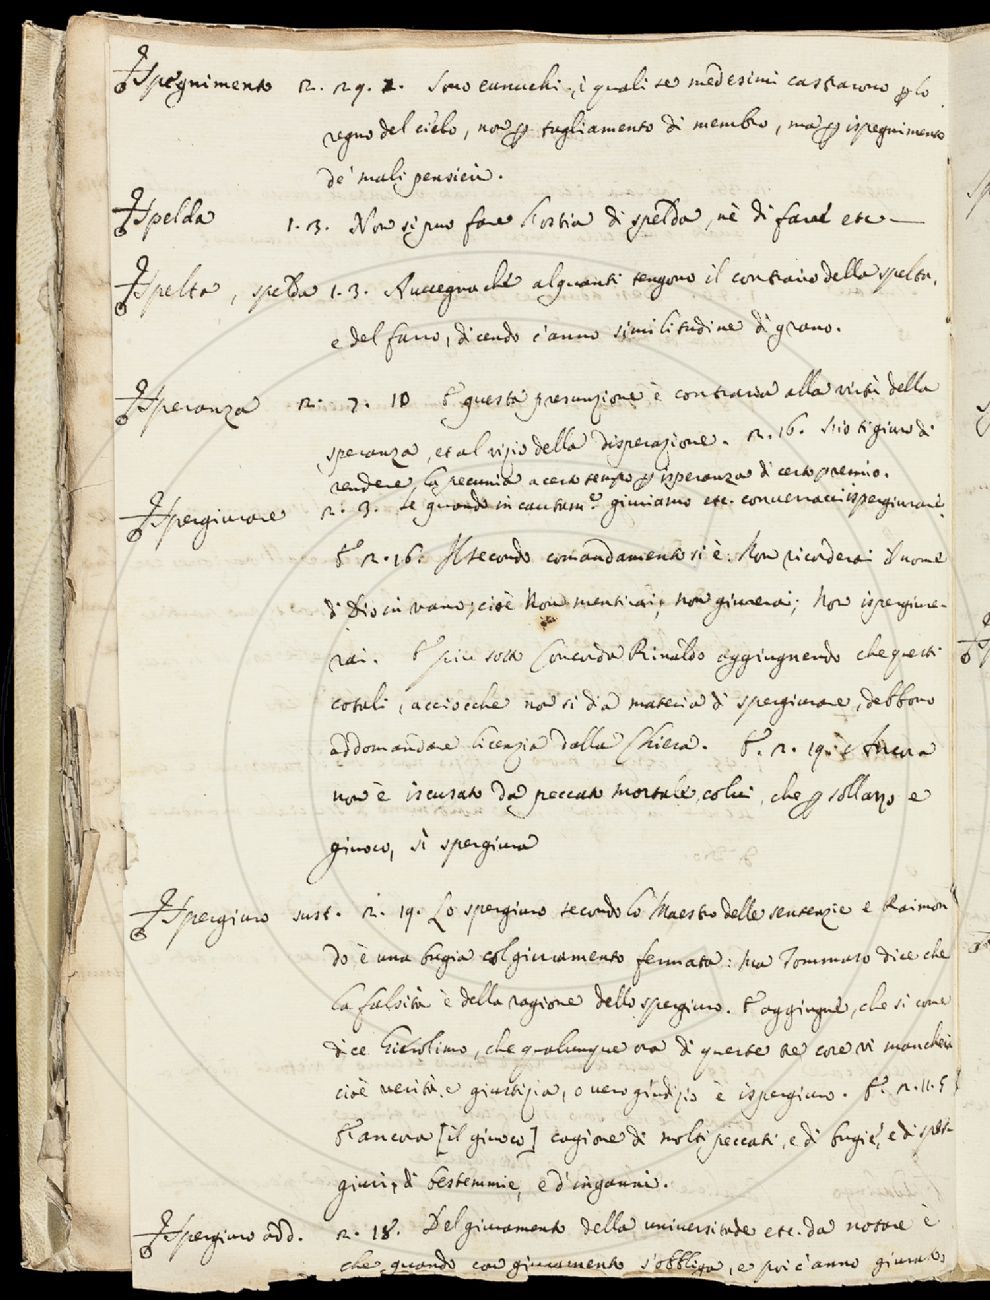 Ispegnimento 2. 29. 2. Sono eunuchi, i quali se medesimi castrarono p lo
regno del cielo, non p tagliamento di membro, ma p ispegnimento
de' mali pensieri.
Spelda 1. 3. Non si può fare hostia di spelda, nè di farre etc
Spelta, spelda 1. 3. Avvegnachè alquanti tengono il contrario della spelta,
e del farro, dicendo c'anno similitudine di grano.
Speranza 2. 7. 10 E questa presunzione è contraria alla virtù della
speranza, et al vizio della disperazione. 2. 16. S'io ti giuro di
rendere la pecunia a certo tempo p isperanza di certo premio.
Spergiurare 2. 3. Se quando incautam.e giuriamo etc. converracci ispergiurare.
E 2. 16. Il secondo comandamento si è: Non ricorderai il nome
di Dio in vano; cioè Non mentirai; non giurerai; Non ispergiure-
rai. E più sotto Concorda Rinaldo aggiugnendo che questi
cotali, acciocche non si dia materia di spergiurare, debbono
addomandare licenzia dalla Chiesa. E. 2. 19. e Ancora
non è iscusato da peccato mortale, colui, che p sollazzo e
giuoco, si spergiura
Spergiuro sust. 2. 19. Lo spergiuro secondo lo Maestro delle sentenzie e Raimon
do è una bugia col giuramento fermata: Ma Tommaso dice che
la falsità è della ragione dello spergiuro. E aggiugne, che si come
dice Gierolimo, che qualunque ora di queste tre cose vi mancheri
cioè verità e giustizia, o vero giudizio è ispergiuro. E. 2. 11. 5
E ancora [il giuoco] cagione di molti peccati, e di bugie, e di sper-
giuri, di bestemmie, e d'inganni.
Spergiuro add. 2. 18. Del giuramento della universitade etc. da notare è
che quando con giuramento s'obbliga, e poi c'anno giurato